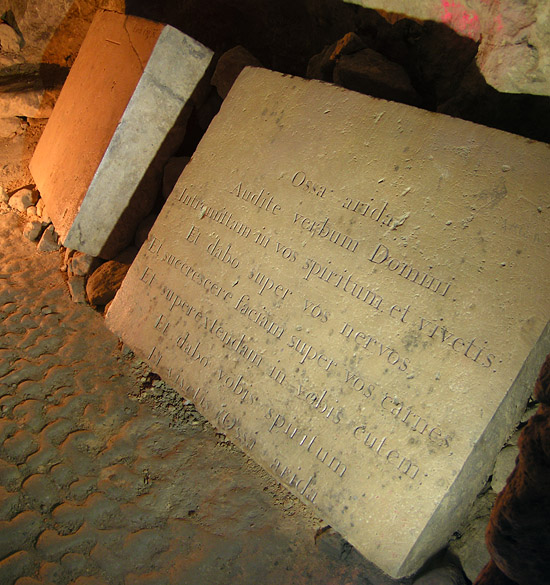 Ossa arida
Audite verbum Domini
Intromittam in vos spiritum, et vivetis:
Et dabo super vos nervos,
Et succrescere faciam super vos carnes,
Et superextendam in vobis cutem:
Et dabo vobis spiritum
Ossa arida